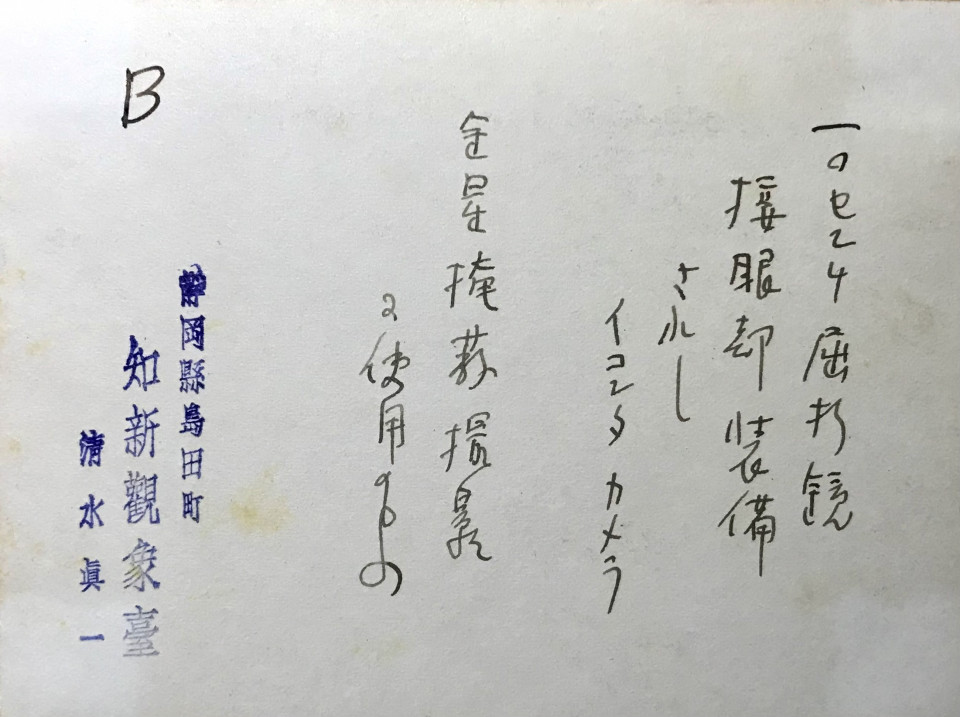 一〇センチ屈折鏡
接眼部装備
されし
イコンタカメラ
金星掩蔽撮影
に使用のもの
B
靜岡縣島田町
知新觀象臺
清水眞一